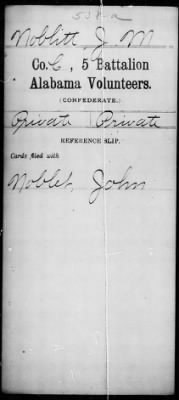 558-a
Noblitt, J. M
Co. C, 5 Battalion
Alabama Volunteers.
(CONFEDERATE.)
Private | Private
REFERENCE SLIP.
Cards filed with
Noblet, John